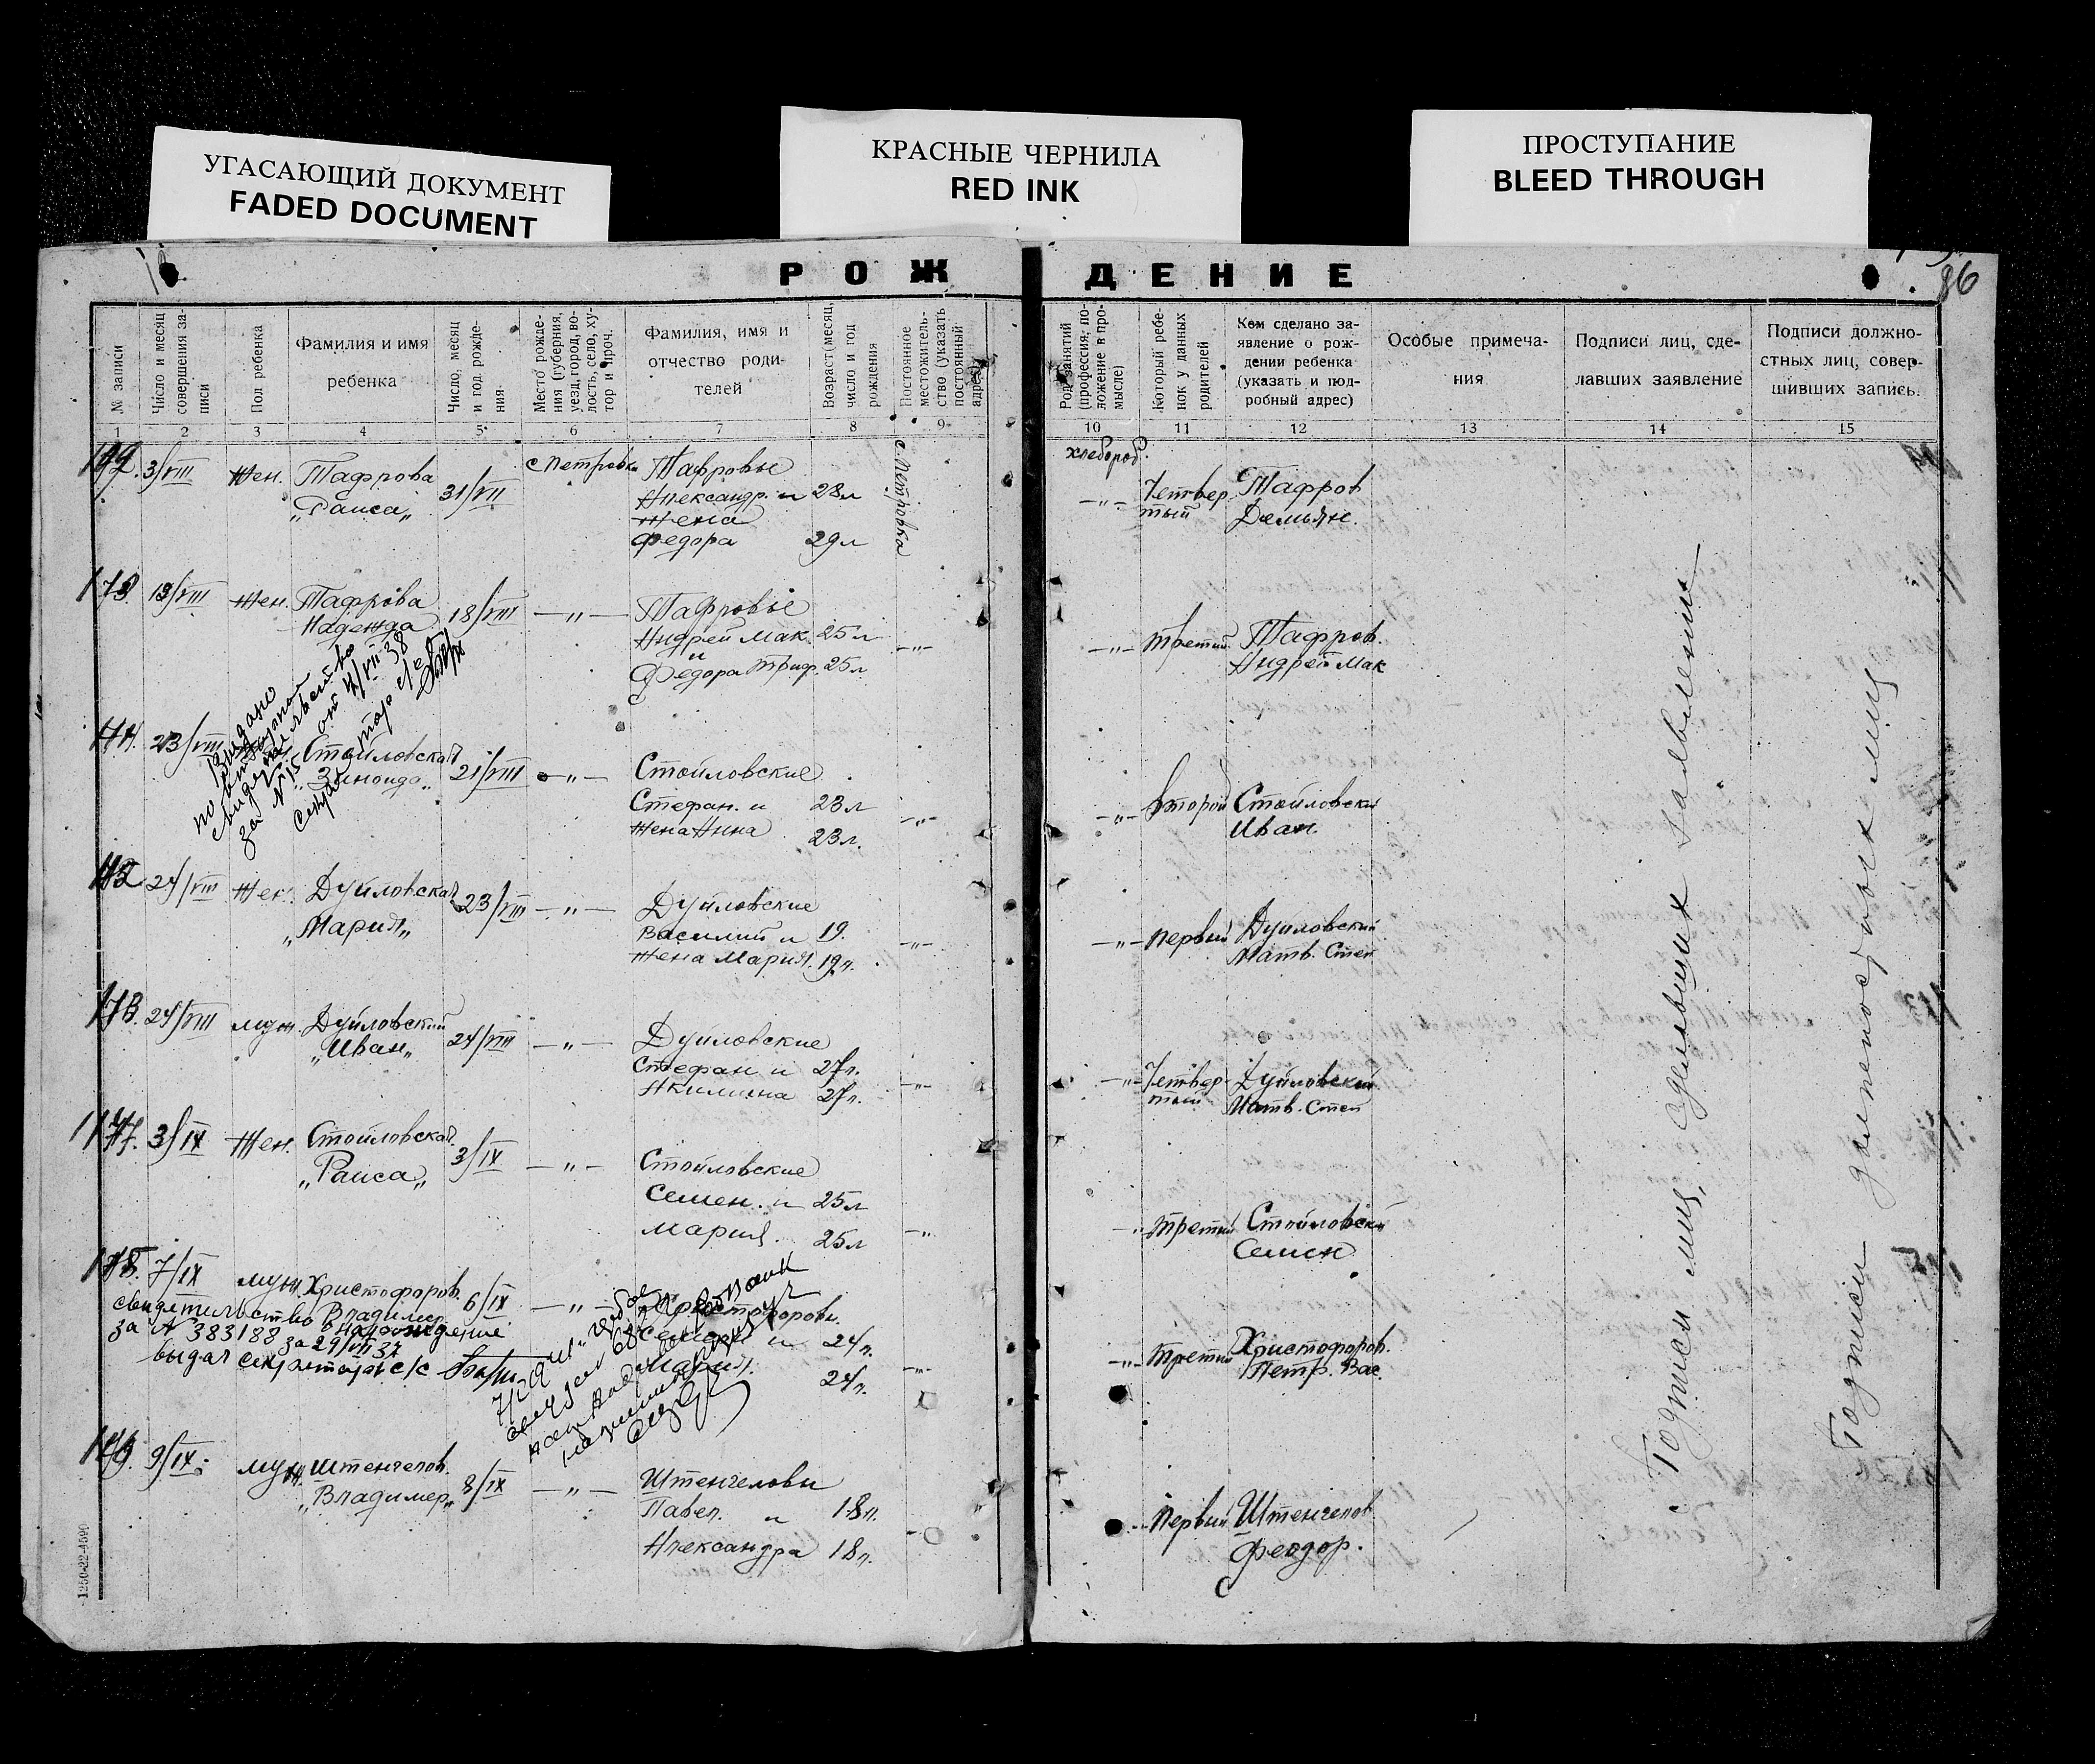 УГАСАЮЩИЙ ДОКУМЕНТ
FADED DOCUMENT
КРАСНЫЕ ЧЕРНИЛА
RED INK
ПРОСТУПАНИЕ
BLEED THROUGH
РОЖДЕНИЕ
86
№ записи
Число и месяц совершения записи
Пол ребенка
Фамилия и имя
ребенка
Число, месяц и год рождения
Место рождения (губерния, уезд, город, волость, село, хутор и проч.
Фамилия, имя и
отчество роди-
телей
Возраст, месяц, число и год рождения
Постоянное местожительство (указать постоянный адрес)
Род занятий (профессия, положение в промысле)
Который ребенок у данных родителей
Кем сделано за-
явление о рож-
дении ребенка
(указать и под-
робный адрес)
Особые примеча-
ния
Подписи лиц, сде-
лавших заявление
Подписи должно-
стных лиц, совер-
шивших запись.
1 2 3 4 5 6 7 8 9 10 11 12 13 14 15
3/VIII Жен. Тафрова 31/VII с Петровка Тафровые с Петровка хлебороб.
„Раиса„ Александр. и 28л -„- Четвер Тафров
жена тый Демьян.
Федора 29л
173. 19/VIII Жен. Тафрова 18/VIII -„- Тафровые
Надежда Андрей Мак. 25л -„- -„- третий Тафров.
и Андрей Мак
Федора Триф. 25л
Выдано
по вторичной
свидетельство
за № 15 от 4/VII 38
секретарь с/с
23/VIII Стойловская 21/VIII -„- Стойловские
„Зиноида„ Стефан. и 23л -„- -„- второй Стойловский
жена Анна 23л. Иван.
24/VIII Жен. Дуйловская 23/VIII -„- Дуйловские
„Мария„ Василий и 19. -„- -„- первый Дуйловский
жена Мария. 19л. Матв. Степ
24/VIII муж. Дуйловский 24/VIII -„- Дуйловские
„Иван„ Стефан и 27л. -„- -„- Четвер Дуйловский
Акилина 27л. тый Матв. Степ
3/IX Жен. Стойловская 3/IX -„- Стойловские
„Раиса„ Семен. и 25л
Мария. 25л -„- -„- третий Стойловский
Семен
7/IX муж Христофоров. 6/IX -„- Христофоровы.
Владимер Семен и 24л. -„- третий Христофоров.
Мария. 24л. -„- Петр. Вас.
свидетильство о нарождение
за № 383188 за 29/VII 37
выдал секретарь с/с
9/IX. муж Штенгелов. 8/IX -„- Штенгеловы
„Владимер„ Павел. и 18л. первый Штенгелов
Александра 18л. Феодор.
Подписи лиц, сделавших заявление
Подписи должностных лиц